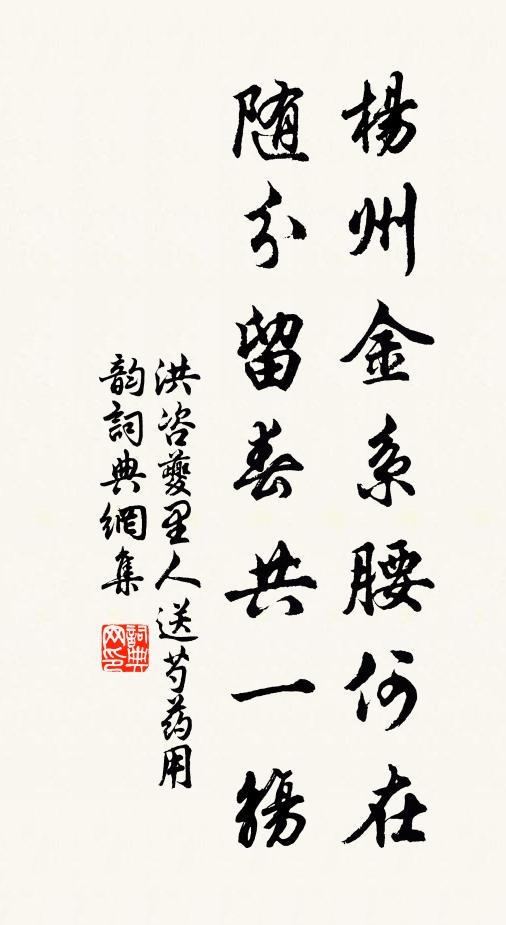 楊州金系腰何在
随分留春共一觴
洪咨夔里人送芍药用
韵詞典網集
詞典
网印